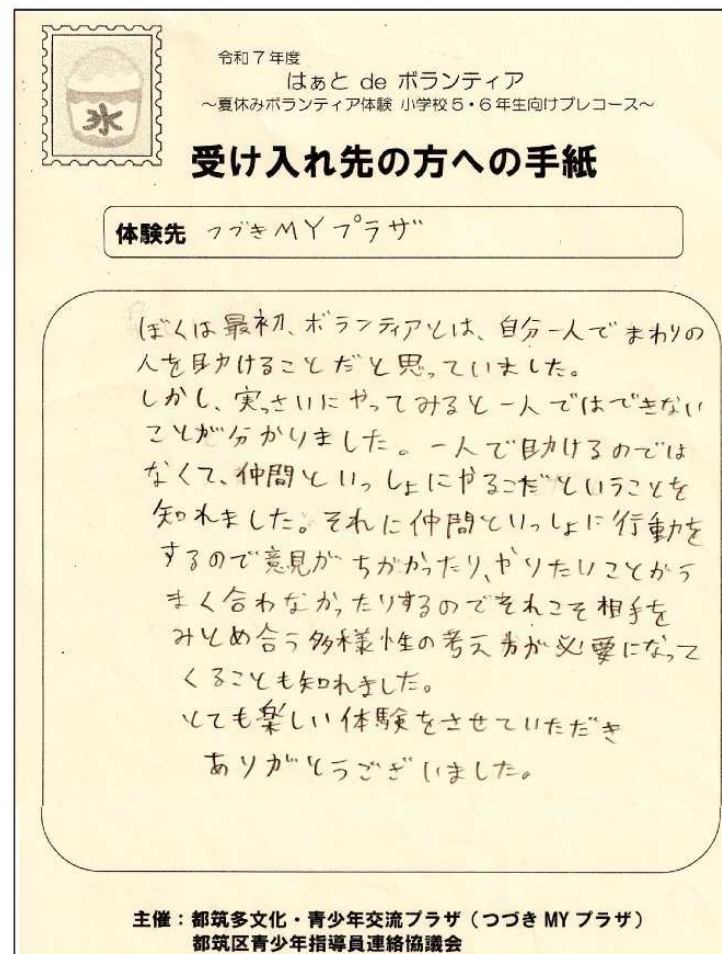 氷
令和7年度
はぁと de ボランティア
~夏休みボランティア体験 小学校5・6年生向けプレコース~
受け入れ先の方への手紙
体験先 つづきMYプラザ
ぼくは最初、ボランティアとは、自分一人でまわりの
人を助けることだと思っていました。
しかし、実っさいにやってみると一人ではできない
ことが分かりました。一人で助けるのでは
なくて、仲間といっしょにやるこだということを
知れました。それに仲間といっしょに行動を
するので意見がちがかったり、やりたいことがう
まく合わなかったりするのでそれこそ相手を
みとめ合う多様性の考え方が必要になって
くることも知れました。
とても楽しい体験をさせていただき
ありがとうございました。
主催:都筑多文化・青少年交流プラザ(つづき MY プラザ)
都筑区青少年指導員連絡協議会